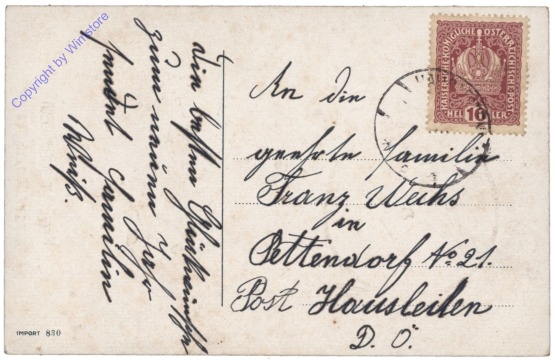 Die besten Glückwünsche
zum neuen Jahr
sendet Familie
Weiß.
An die
geehrte Familie
Franz Weihs
in
Pettendorf No 21.
Post Hausleiten
D. Ö.
KAISERLICHE KÖNIGLICHE ÖSTERREICHISCHE POST
HELLER 10
IMPORT 830
Copyright by Winstore